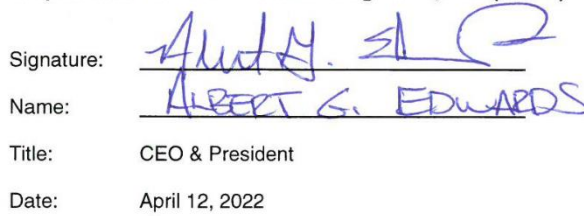 Signature: Albert G. 
Name: ALBERT G. EDWARDS
Title: CEO & President
Date: April 12, 2022